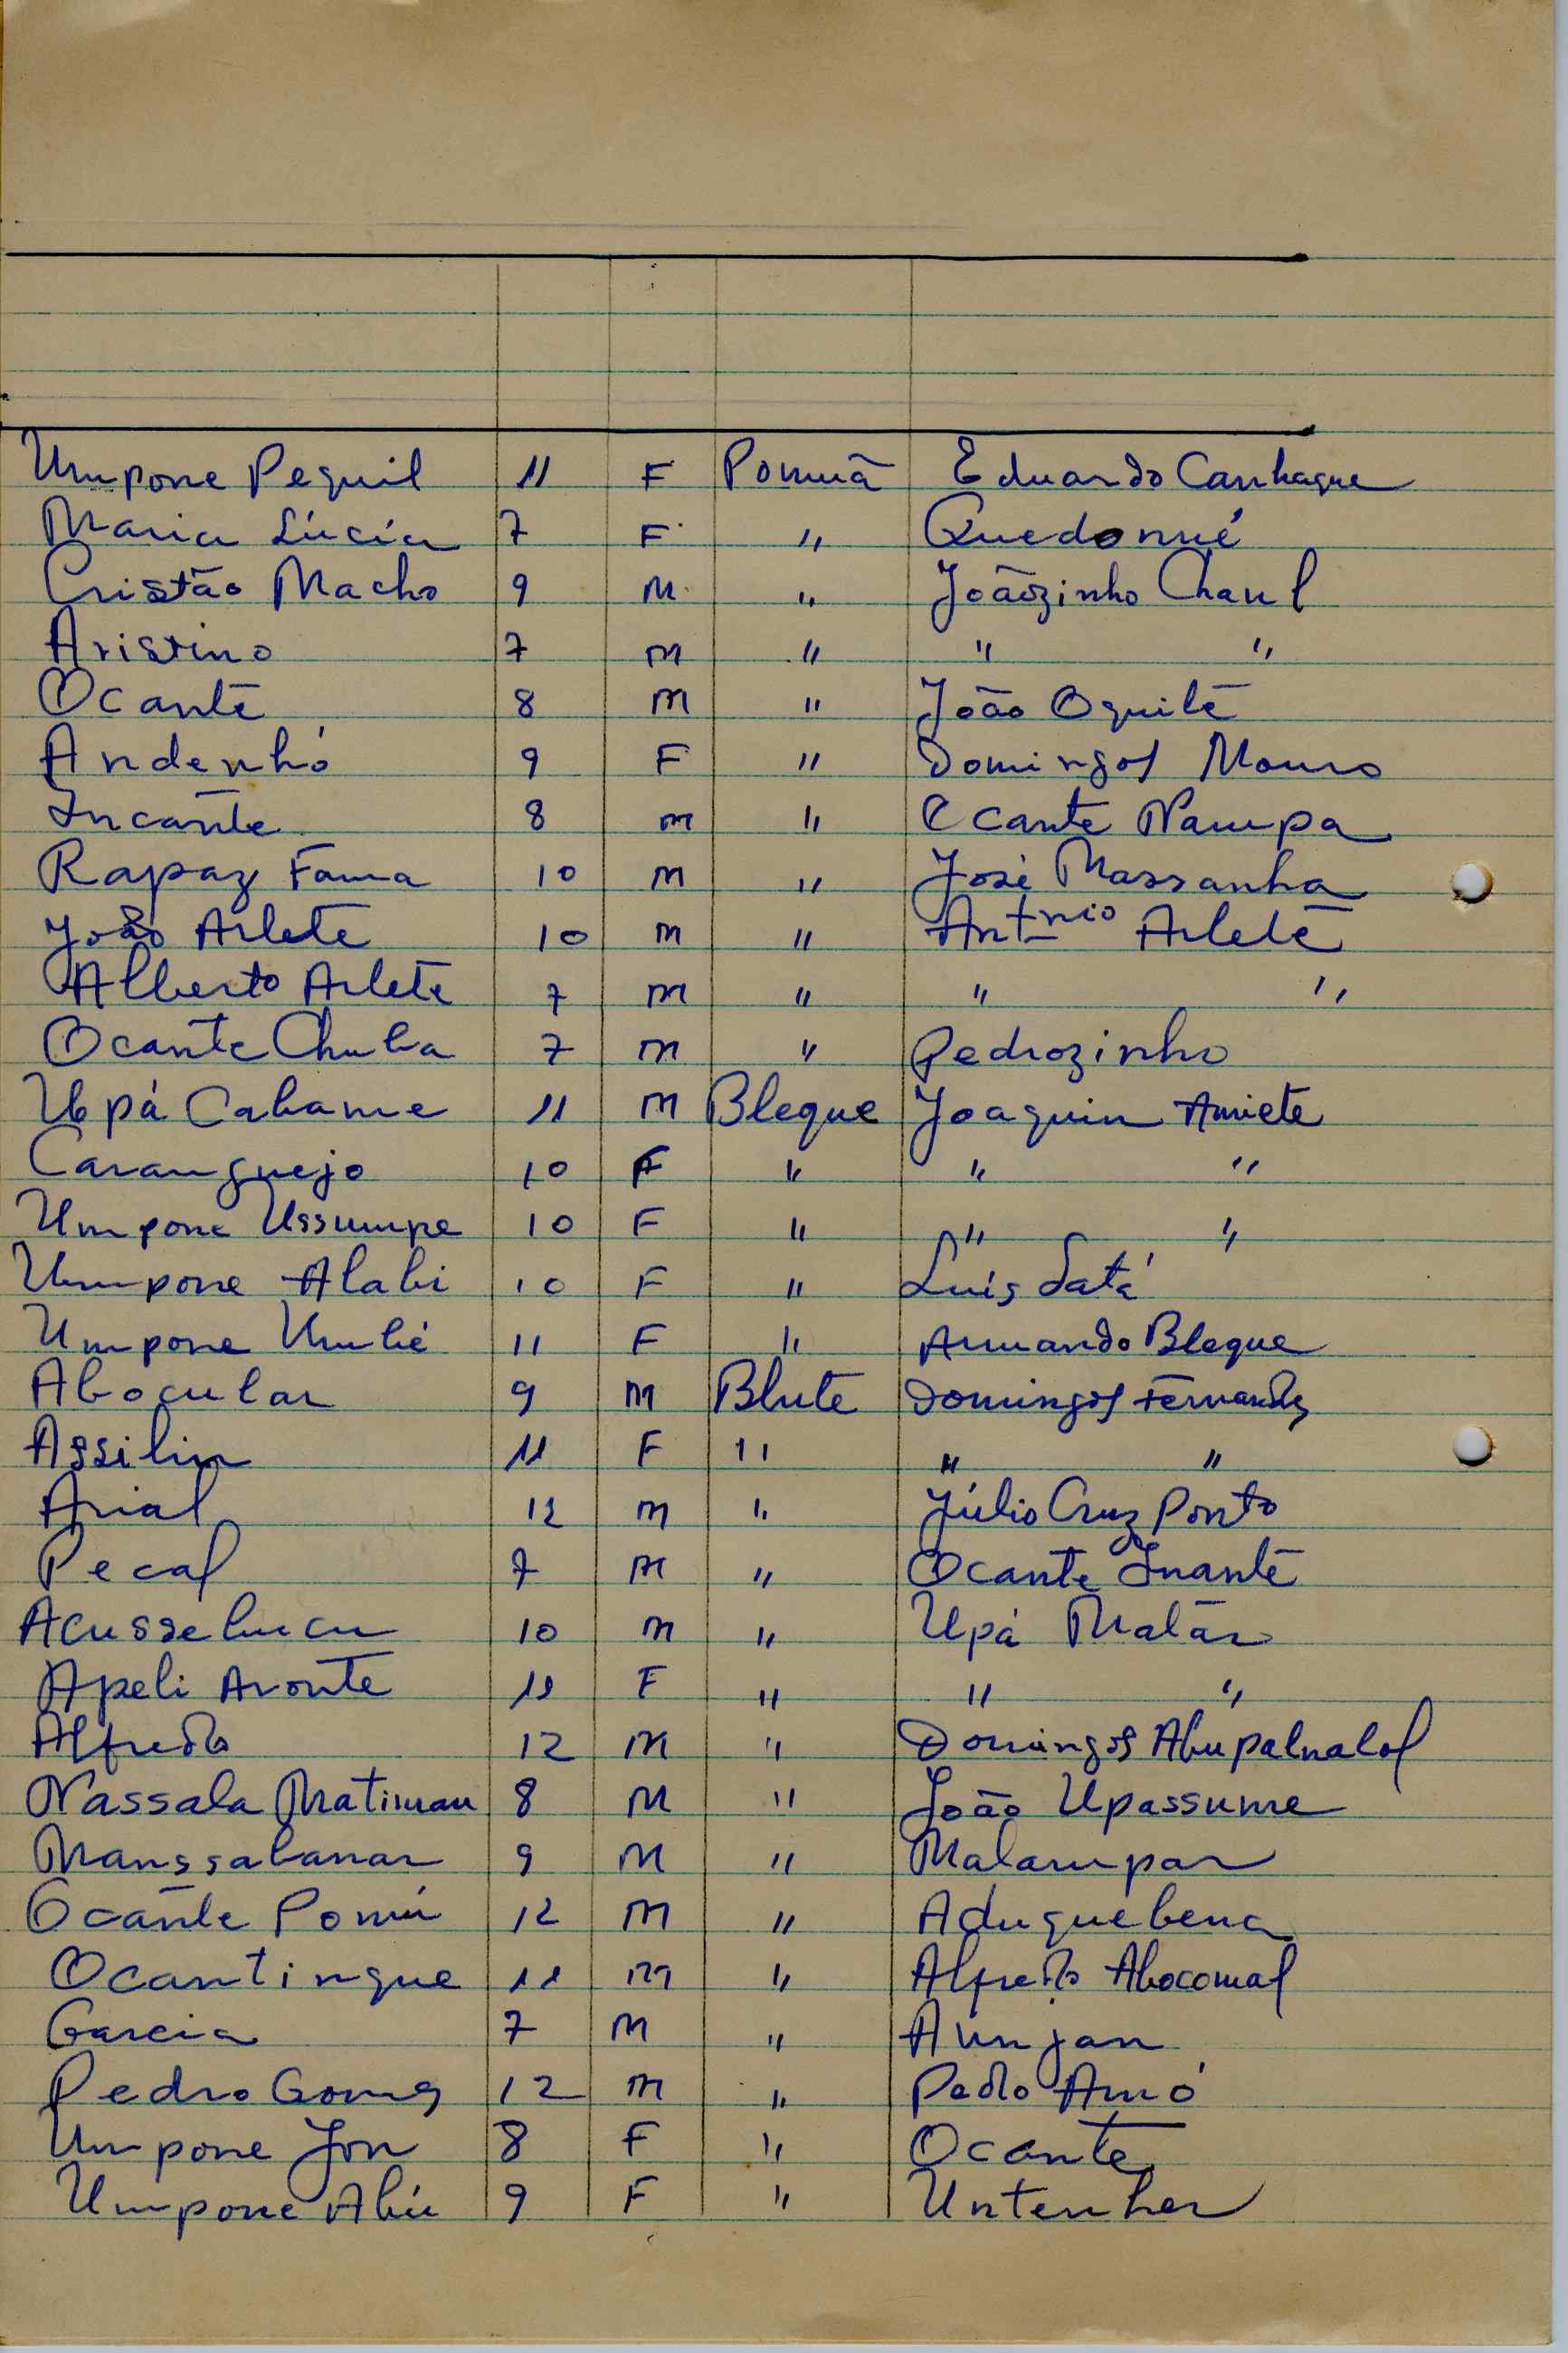 Umpone Pequil 11 F Pomuã Eduardo Canhaque
Maria Lúcia 7 F " Quedonué
Cristão Macho 9 M " Joãozinho Chaul
Aristino 7 M " " "
Ocante 8 M " João Oquite
Andenhó 9 F " Domingos Mouro
Incante 8 M " Ocante Nampa
Rapaz Fama 10 M " José Massanha
João Arlete 10 M " Antnio Arlete
Alberto Arlete 7 M " " "
Ocante Chuba 7 M " Pedrozinho
Upá Cabame 11 M Bleque Joaquim Amiete
Caranguejo 10 F " " "
Umpone Ussumpe 10 F " " "
Umpone Alabi 10 F " Luís Satá
Umpone Umbé 11 F " Armando Bleque
Abocular 9 M Blute Domingos Fernandes
Assilin 11 F " " "
Arial 12 M " Júlio Cruz Ponto
Pecal 7 M " Ocante Inante
Acussebucu 10 M " Upá Malan
Apeli Aronte 11 F " " "
Alfredo 12 M " Domingos Abupalnalol
Nassala Matiman 8 M " João Upassume
Manssabanar 9 M " Malampar
Ocante Pomú 12 M " Aduquebena
Ocantingue 11 M " Alfredo Abocomal
Garcia 7 M " Aunjan
Pedro Gomes 12 M " Pedro Amó
Umpone Jon 8 F " Ocante
Umpone Abú 9 F " Untenher